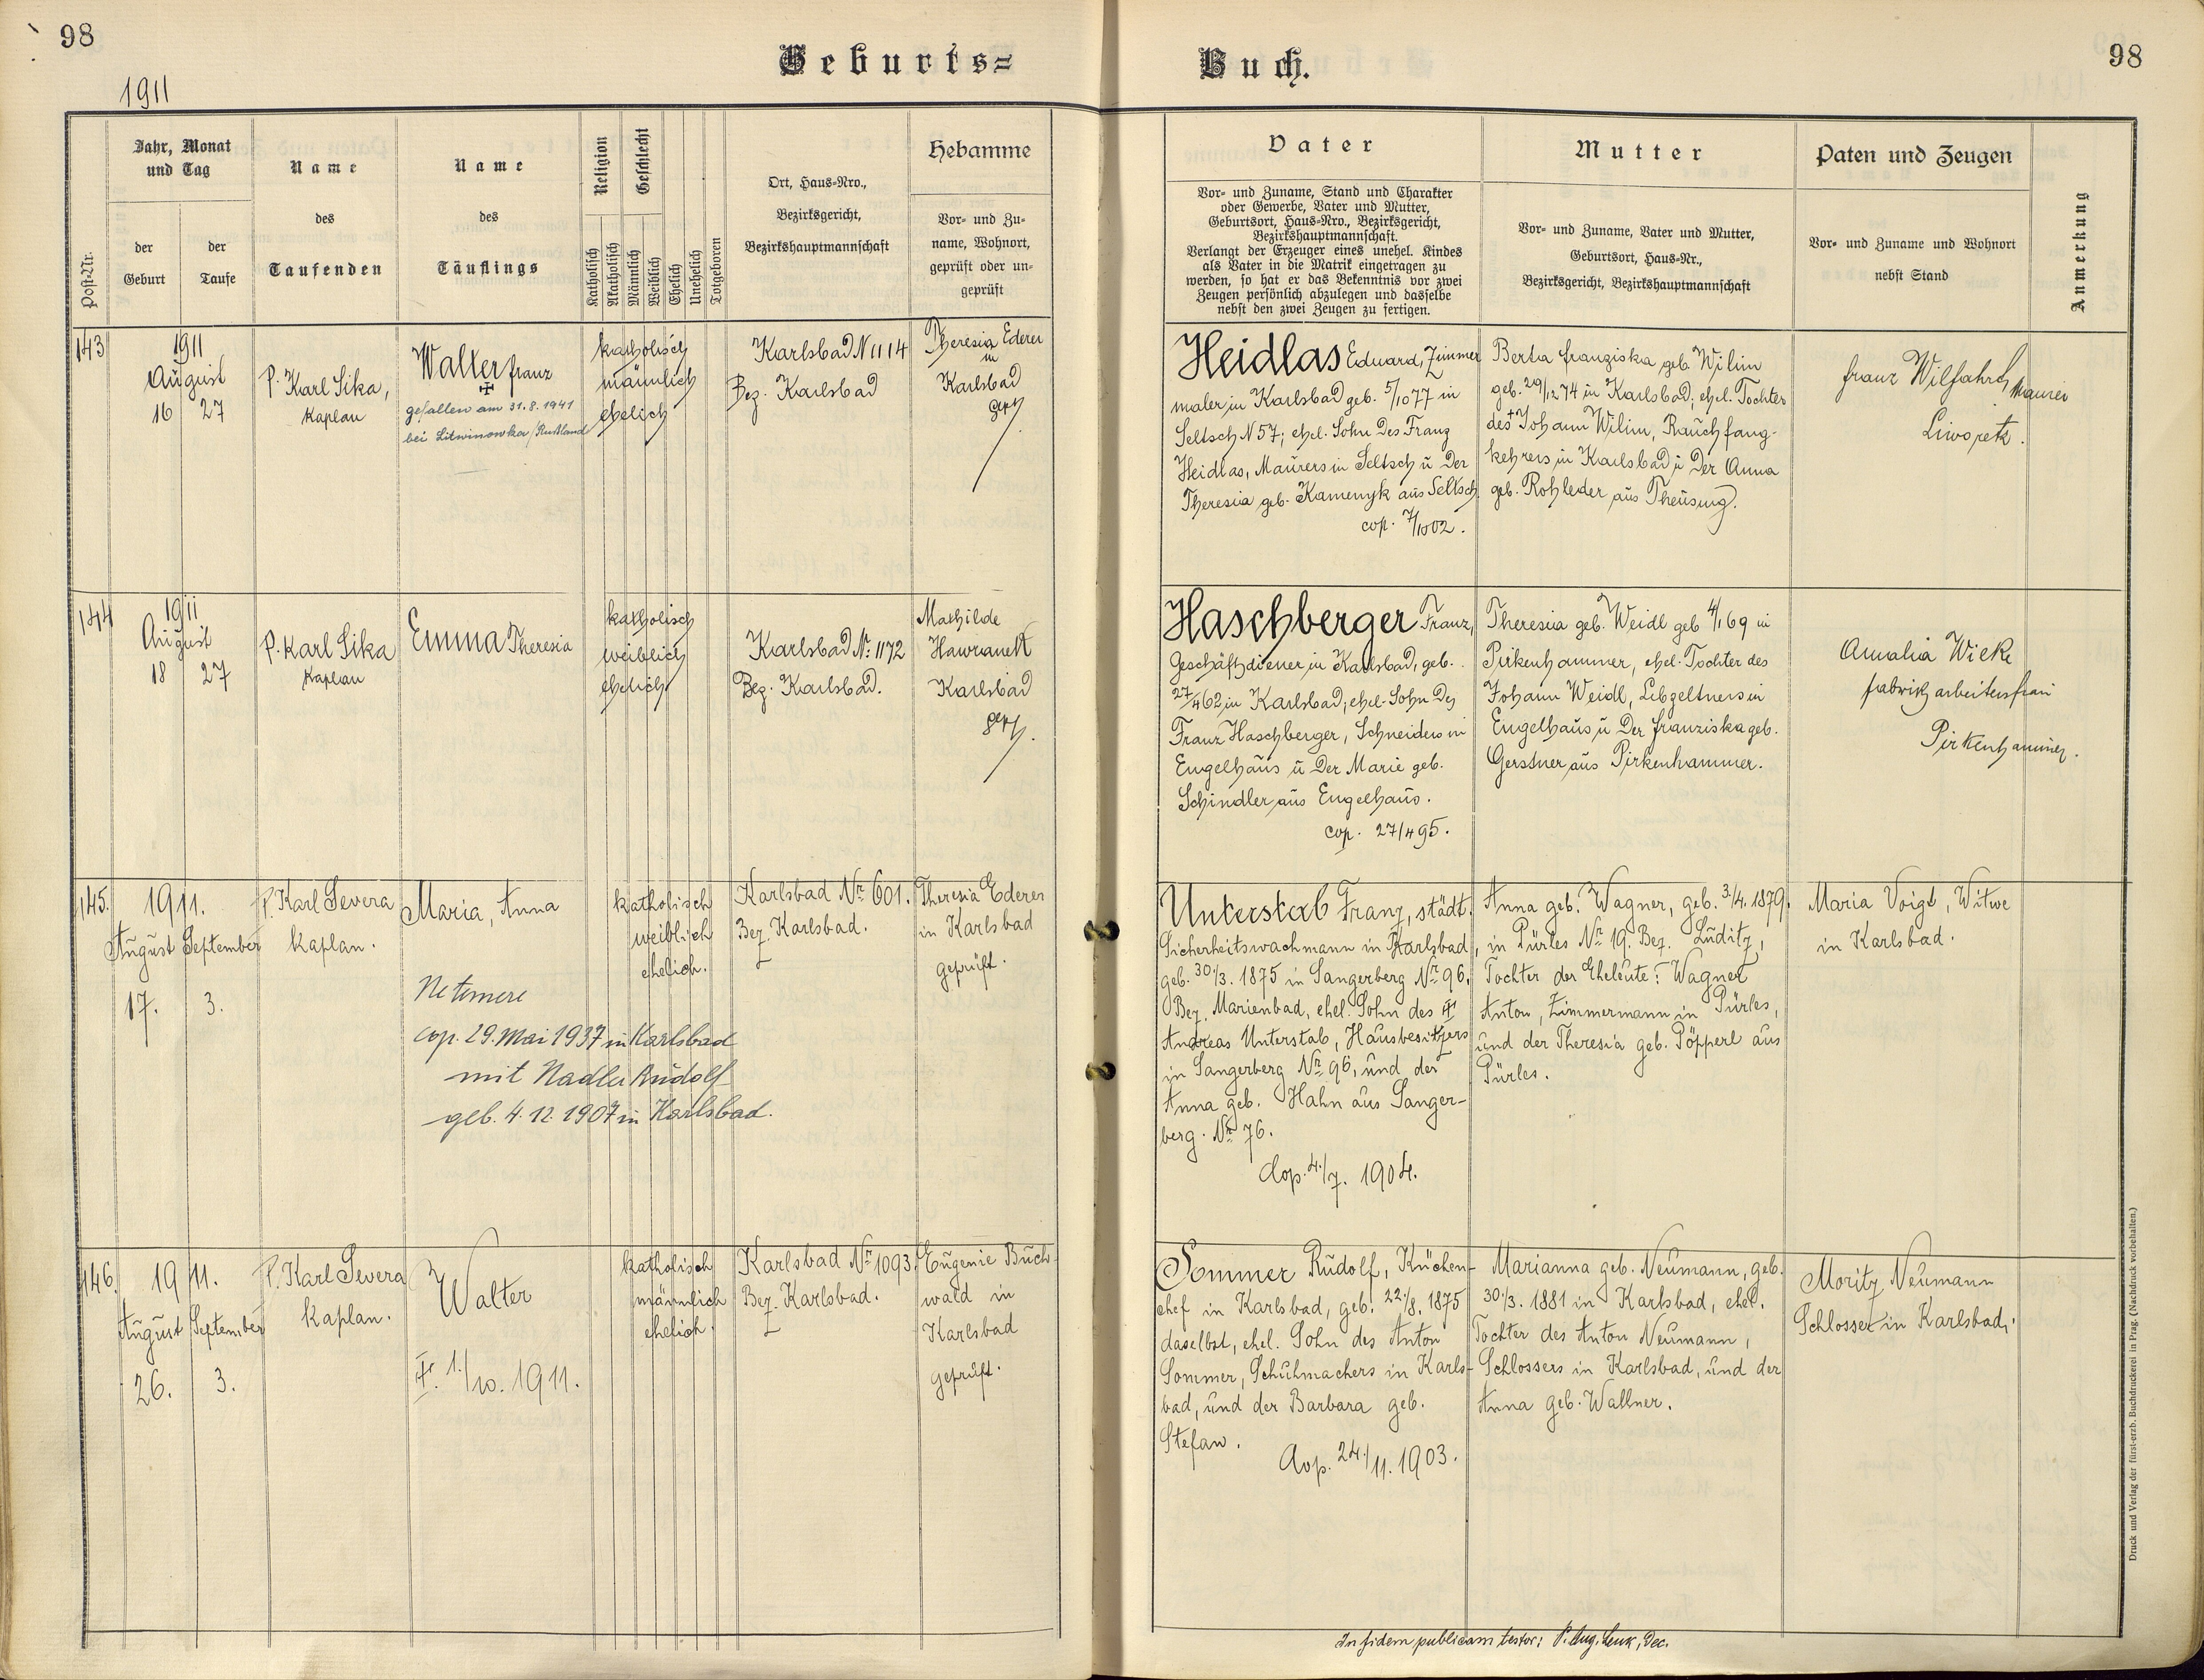 98
Geburts=
Buch.
98
1911
Post-Nr.
Jahr, Monat
und Tag
der
Geburt
der
Taufe
Name
des
Taufenden
Name
des
Täuflings
Religion
Katholisch
Akatholisch
Geschlecht
Männlich
Weiblich
Ehelich
Unehelich
Totgeboren
Ort, Haus-Nro.,
Bezirksgericht,
Bezirkshauptmannschaft
Hebamme
Vor- und Zu-
name, Wohnort,
geprüft oder un-
geprüft
Vater
Vor- und Zuname, Stand und Charakter
oder Gewerbe, Vater und Mutter,
Geburtsort, Haus-Nro., Bezirksgericht,
Bezirkshauptmannschaft.
Verlangt der Erzeuger eines unehel. Kindes
als Vater in die Matrik eingetragen zu
werden, so hat er das Bekenntnis vor zwei
Zeugen persönlich abzulegen und dasselbe
nebst den zwei Zeugen zu fertigen.
Mutter
Vor- und Zuname, Vater und Mutter,
Geburtsort, Haus-Nr.,
Bezirksgericht, Bezirkshauptmannschaft
Paten und Zeugen
Vor- und Zuname und Wohnort
nebst Stand
Anmerkung
143
1911
August
16 27
P. Karl Sika,
Kaplan
Walter Franz
✠
gefallen am 31.8.1941
bei Litwinowka/Rußland
katholisch
männlich
ehelich
Karlsbad N 1114
Bez. Karlsbad
Theresia Ederer
in
Karlsbad
gepr.
Heidlas Eduard, Zimmer
maler in Karlsbad geb. 5/10 77 in
Seltsch N 57; ehel. Sohn des Franz
Heidlas, Maurers in Seltsch u der
Theresia geb. Kamenyk aus Seltsch
cop. 7/10 02.
Berta Franziska geb. Wilim
geb. 29/12 74 in Karlsbad, ehel. Tochter
des + Johann Wilim, Rauchfang-
kehrers in Karlsbad u der Anna
geb. Rohleder aus Theusing.
Franz Wilfahrt, Maurer
144
1911
August
18 27
P. Karl Sika
Kaplan
Emma Theresia
katholisch
weiblich
ehelich
Karlsbad Nr. 1172
Bez. Karlsbad.
Mathilde
Hawranek
Karlsbad
gepr.
Haschberger Franz,
Geschäftsdiener in Karlsbad, geb.
27/4 62 in Karlsbad, ehel. Sohn des
Franz Haschberger, Schneiders in
Engelhaus u der Marie geb.
Schindler aus Engelhaus.
cop. 27/4 95.
Theresia geb. Weidl geb 4/1 69 in
Pirkenhammer, ehel. Tochter des
Johann Weidl, Lebzeltners in
Engelhaus u der Franziska geb.
Gerstner aus Pirkenhammer.
Amalia Wiek
Fabrikarbeitersfrau
Pirkenhammer.
145.
1911.
August September
17. 3.
P. Karl Severa
Kaplan.
Maria, Anna
Ne temere
cop. 29. Mai 1937 in Karlsbad
mit Nadler Rudolf
geb. 4.12.1907 in Karlsbad.
katholisch
weiblich
ehelich.
Karlsbad Nr. 601.
Bez. Karlsbad.
Theresia Ederer
in Karlsbad
geprüft.
Unterstab Franz, städt.
Sicherheitswachmann in Karlsbad,
geb. 30./3. 1875 in Sangerberg Nr. 96.
Bez. Marienbad, ehel. Sohn des ✠
Andreas Unterstab, Hausbesitzers
in Sangerberg Nr. 96, und der
Anna geb. Hahn aus Sanger-
berg. Nr. 76.
Cop. 4./7. 1904.
Anna geb. Wagner, geb. 3./4. 1879.
in Pürles Nr. 19. Bez. Luditz,
Tochter der Eheleute: Wagner
Anton, Zimmermann in Pürles,
und der Theresia geb. Pöpperl aus
Pürles.
Maria Voigt, Witwe
in Karlsbad.
146.
1911.
August September
26. 3.
P. Karl Severa
Kaplan.
Walter
✠. 1./10. 1911.
katholisch
männlich
ehelich.
Karlsbad Nr. 1093.
Bez. Karlsbad.
Eugenie Buch-
wald in
Karlsbad
geprüft.
Sommer Rudolf, Küchen-
chef in Karlsbad, geb. 22./8. 1875
daselbst, ehel. Sohn des Anton
Sommer, Schuhmachers in Karls-
bad, und der Barbara geb.
Stefan.
Cop. 24./11. 1903.
Marianna geb. Neumann, geb.
30./3. 1881 in Karlsbad, ehel.
Tochter des Anton Neumann,
Schlossers in Karlsbad, und der
Anna geb. Wallner.
Moritz Neumann
Schlosser in Karlsbad.
In fidem publicam testor: P. Aug. Lenk, Dec.
Druck und Verlag der fürst-erzb. Buchdruckerei in Prag. (Nachdruck vorbehalten.)